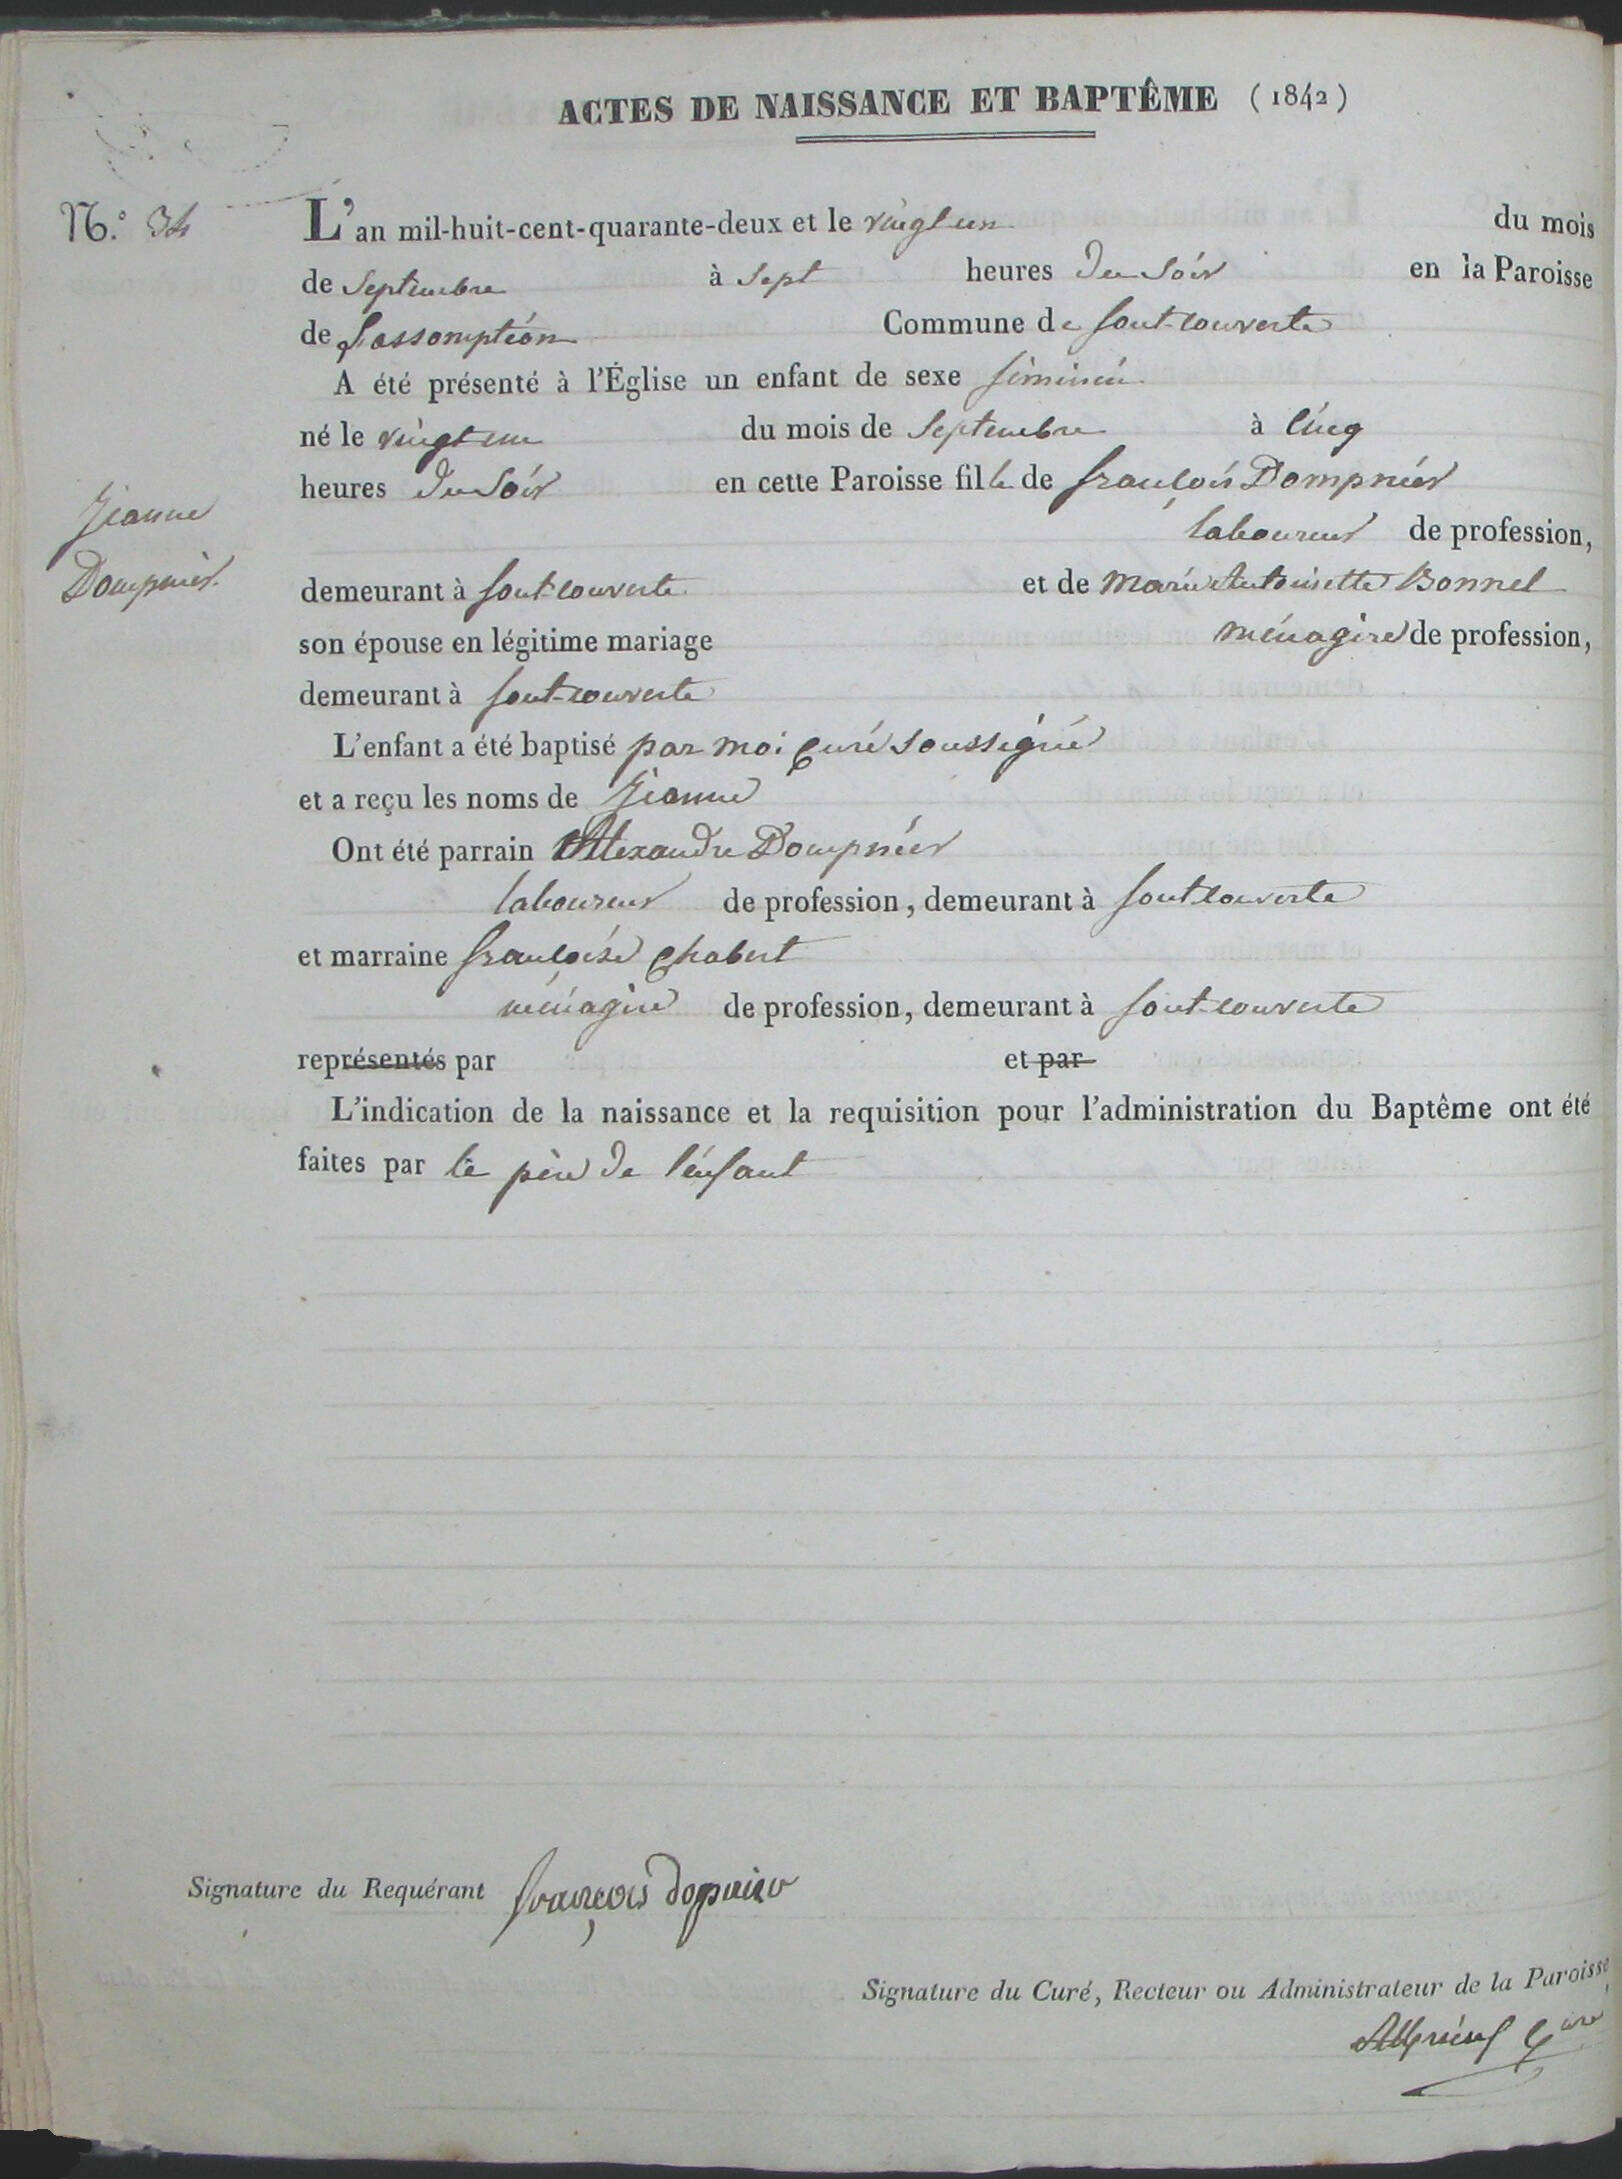 ACTES DE NAISSANCE ET BAPTÊME (1842)
N.° 34
L'an mil-huit-cent-quarante-deux et le vingt un du mois
de Septembre à Sept heures du Soir en la Paroisse
de L'assomption Commune de font-couverte
A été présenté à l'Église un enfant de sexe féminin
né le vingt un du mois de Septembre à Cinq
heures du Soir en cette Paroisse fille de françois Dompnier
laboureur de profession,
Jeanne
Dompnier.
demeurant à font-couverte et de marie Antoinette Bonnel
son épouse en légitime mariage ménagère de profession,
demeurant à font-couverte
L'enfant a été baptisé par moi Curé Soussigné
et a reçu les noms de Jeanne
Ont été parrain Alexandre Dompnier
laboureur de profession, demeurant à fontcouverte
et marraine françoise Chabert
ménagère de profession, demeurant à font-couverte
représentés par et par
L'indication de la naissance et la requisition pour l'administration du Baptême ont été
faites par le père de l'enfant
Signature du Requérant françois dopnier
Signature du Curé, Recteur ou Administrateur de la Paroisse
Curé